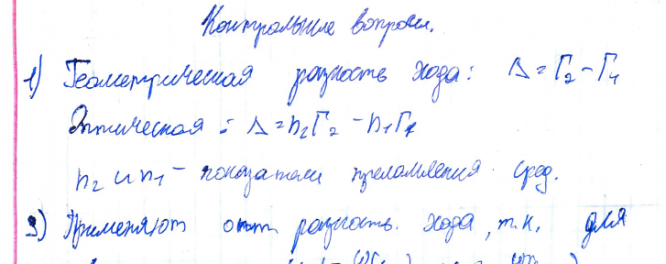 Контрольные вопросы.
1) Геометрическая разность хода: Δ = Г₂ - Г₁
Оптическая: Δ = n₂Г₂ - n₁Г₁
n₂ и n₁ - показатели преломления сред.
3) Применяют опт разность. хода, т.к. для